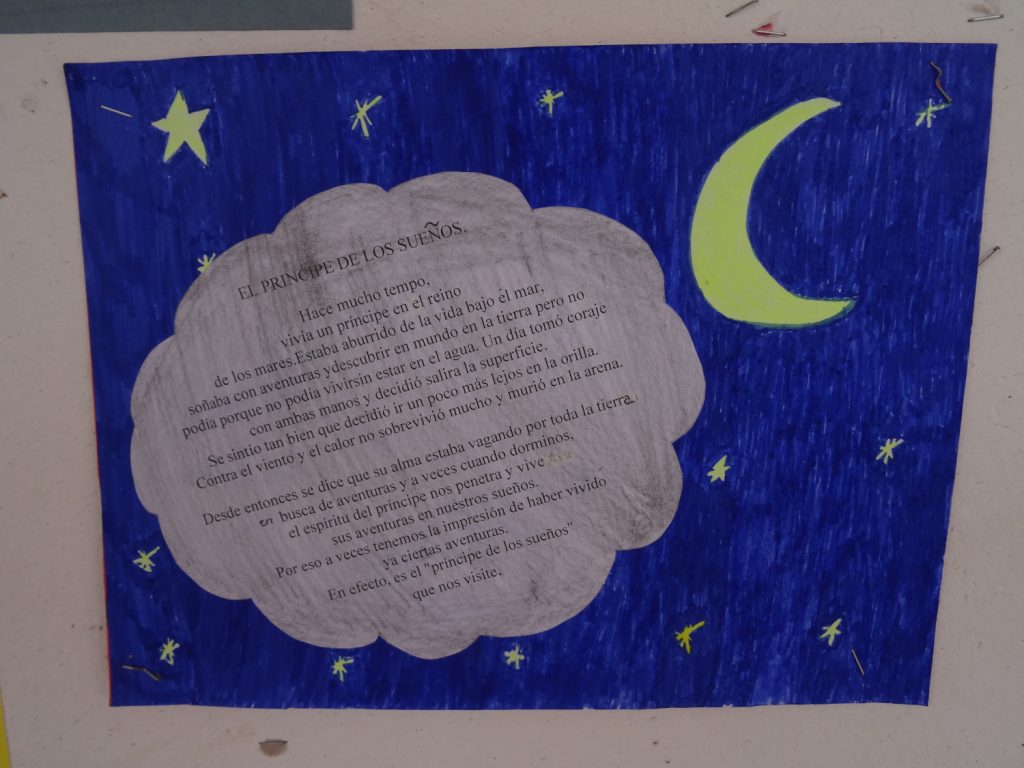 EL PRINCIPE DE LOS SUEÑOS.
Hace mucho tempo,
vivia un príncipe en el reino
de los mares.Estaba aburrido de la vida bajo él mar,
soñaba con aventuras ydescubrir en mundo en la tierra pero no
podía porque no podía vivirsin estar en el agua. Un día tomó coraje
con ambas manos y decidió salira la superficie.
Se sintío tan bien que decidió ir un poco más lejos en la orilla.
Contra el viento y el calor no sobrevivió mucho y murió en la arena.
Desde entonces se dice que su alma estaba vagando por toda la tierra
en busca de aventuras y a veces cuando dorminos,
el espíritu del príncipe nos penetra y vive
sus aventuras en nuestros sueños.
Por eso a veces tenemos la impresión de haber vivido
ya ciertas aventuras.
En efecto, es el "príncipe de los sueños"
que nos visite.